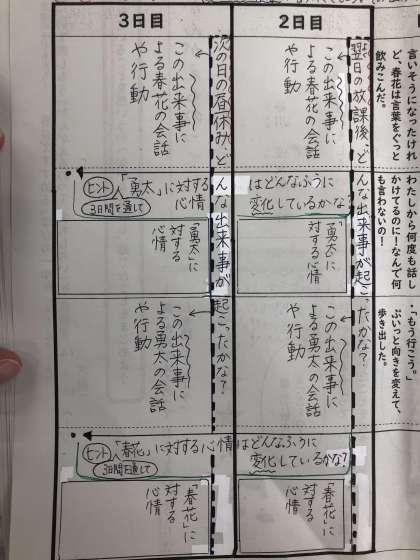 言いそうになったけれ
ど、春花は言葉をぐっと
飲みこんだ。
わたしから何度も話し
かけてるのに！なんで何
も言わないの！
「もう行こう。」
ぷいっと向きを変えて、
歩き出した。
2日目
翌日の放課後、どんな出来事が起こったかな？
この出来事に
よる春花の会話
や行動
「勇太」に
対する
心情
この出来事に
よる勇太の会話
や行動
「春花」に
対する
心情
3日目
次の日の昼休み、どんな出来事が起こったかな？
この出来事に
よる春花の会話
や行動
ヒント 「勇太」に対する心情はどんなふうに変化しているかな？
3日間を通して
「勇太」に
対する
心情
この出来事に
よる勇太の会話
や行動
ヒント 「春花」に対する心情はどんなふうに変化しているかな？
3日間を通して
「春花」に
対する
心情